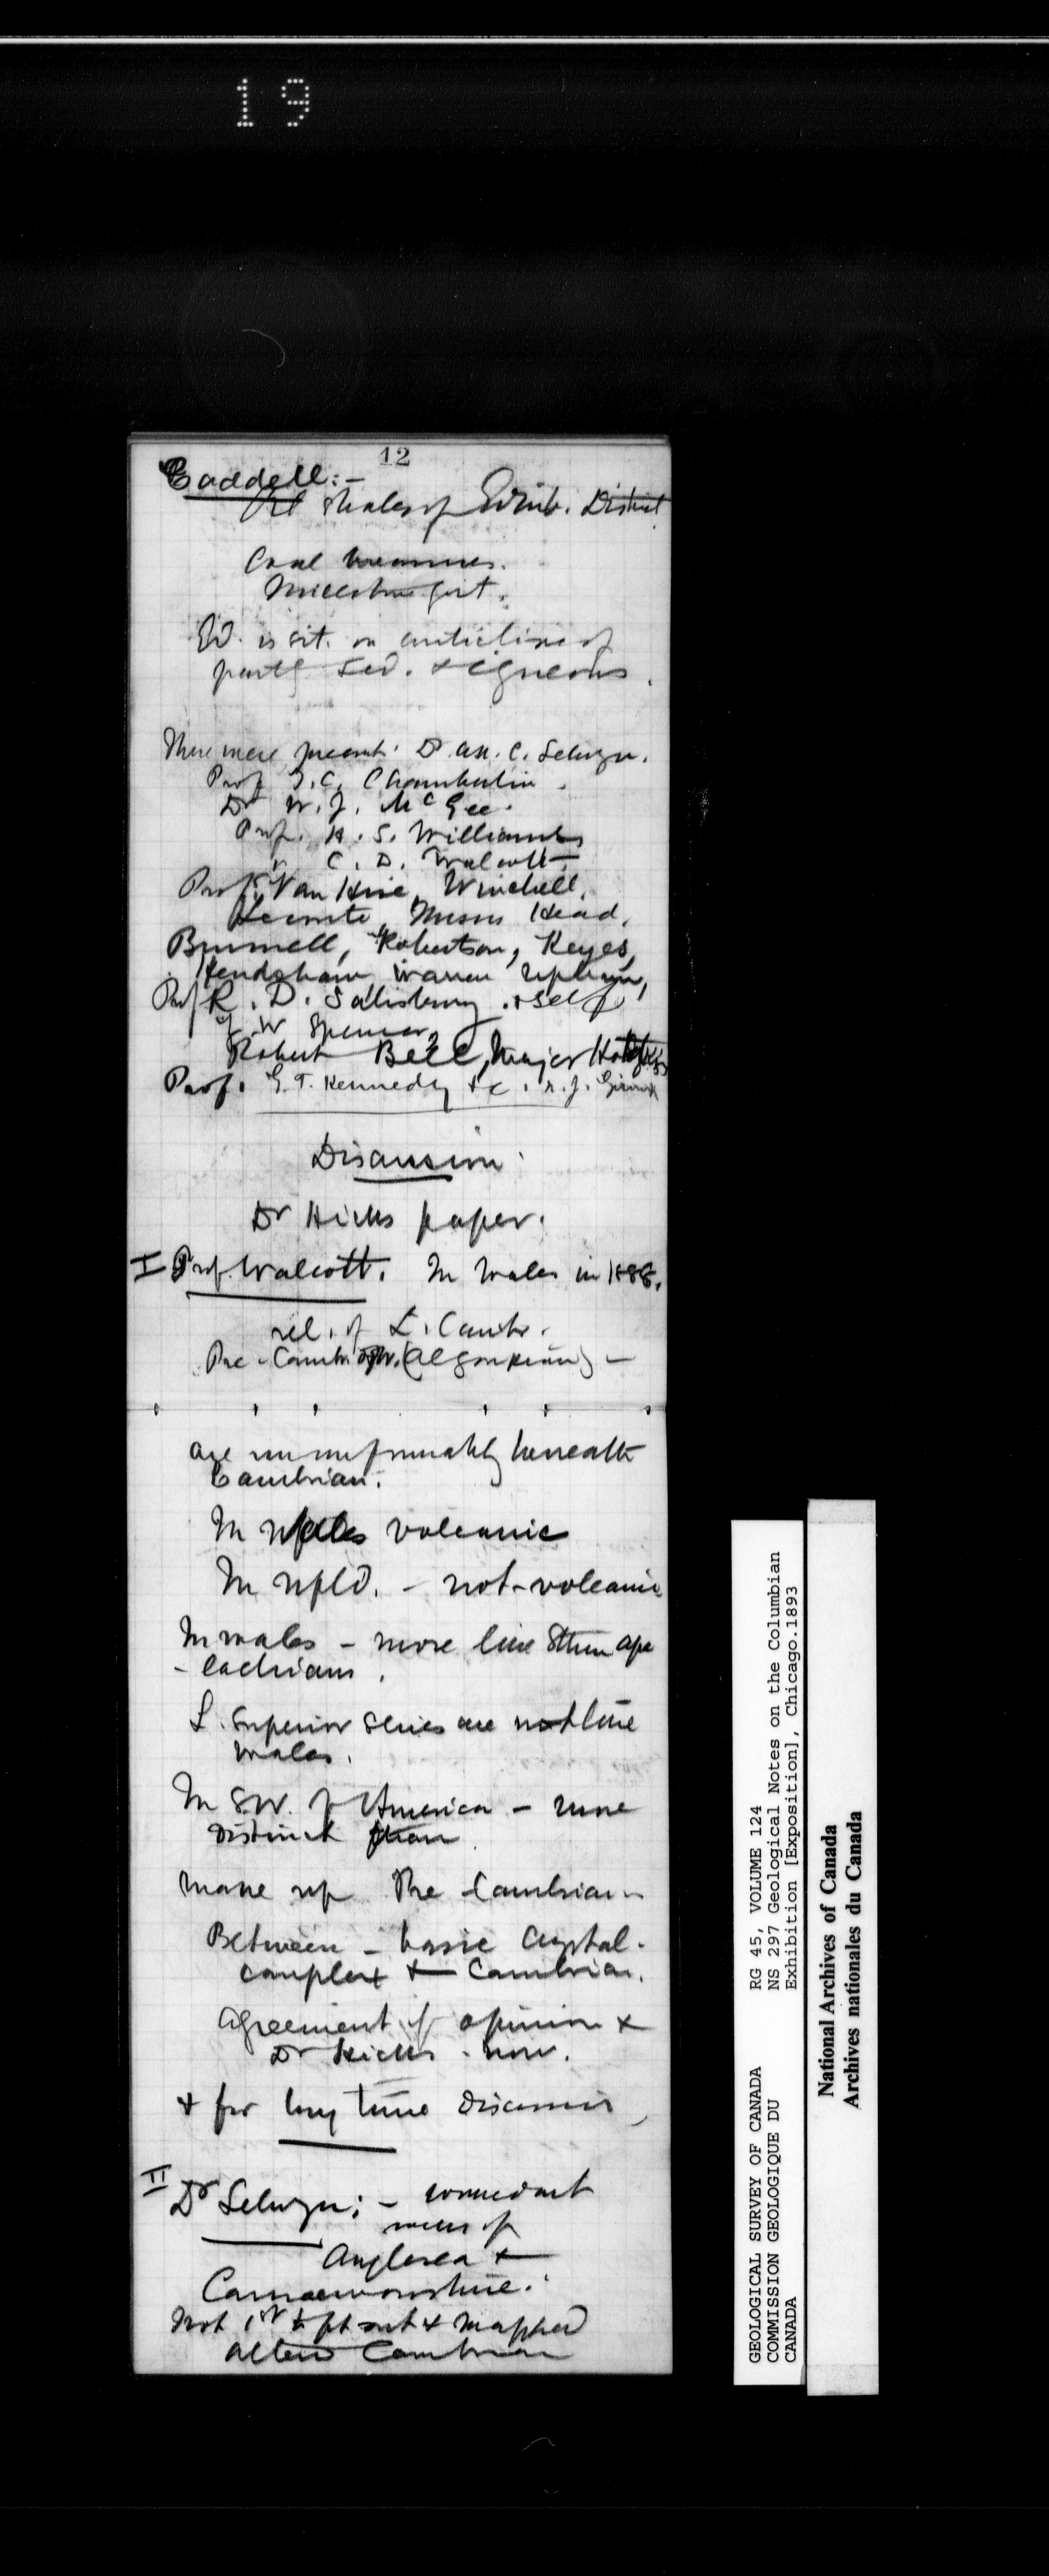 19
12
Caddell:-
Oil shales of Edinb. District
Coal measures.
Millstone grit.
Ed. is sit. on anticline of
partly sed. & igneous.
There were present: Dr A.R.C. Selwyn.
Prof T.C. Chamberlin.
Dr W.J. McGee.
Prof. H.S. Williams
" C.D. Walcott
Profs. Van Hise, Winchell,
Leconte, Messrs Head,
Brumell, Robertson, Keyes,
Warren Upham,
Prof R.D. Salisbury & self
J.W. Spencer,
Robert Bell, Major Hotchkiss
Prof. G.T. Kennedy &c. N.J. Giroux
Discussion:
Dr Hicks paper.
I Prof. Walcott. In Wales in 1888.
rel. of L. Camb.
Pre-Cambr (Algonkian) -
are unconformably beneath
Cambrian.
In Wales volcanic
In Nfld. - not-volcanic
In Wales - more like Sthern Apa
- lachians.
L. Superior series are not like
Wales.
In SW. of America - more
distinct than
make up Pre-Cambrian -
Between - basic Crystal.
complex & Cambrian.
Agreement of opinion &
Dr Hicks. now.
& for long time discussion
II Dr Selwyn: -
views of
Anglesea &
Carnarvonshire.
Not 1st to pt out & mapped
altered Cambrian
GEOLOGICAL SURVEY OF CANADA
COMMISSION GEOLOGIQUE DU
CANADA
RG 45, VOLUME 124
NS 297 Geological Notes on the Columbian
Exhibition [Exposition], Chicago.1893
National Archives of Canada
Archives nationales du Canada